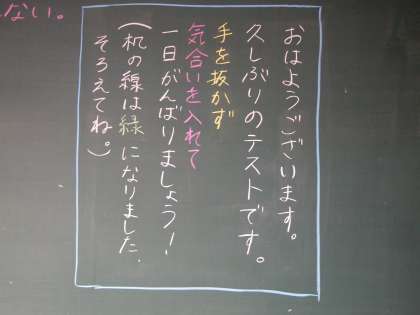 おはようございます。
久しぶりのテストです。
手を抜かず
気合いを入れて
一日がんばりましょう！
(机の線は緑になりました.
そろえてね。)
ない。